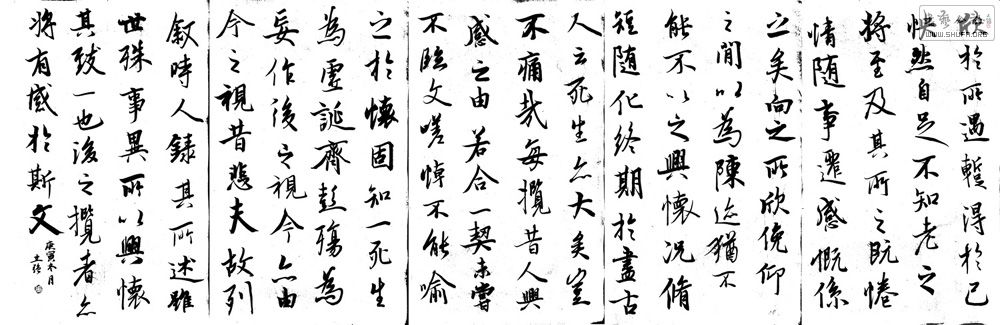 欣於所遇暫得於己
快然自足不知老之
將至及其所之既惓
情随事遷感慨係
之矣向之所欣俛仰
之間以為陳迹猶不
能不以之興懷況脩
短随化終期於盡古
人云死生亦大矣豈
不痛哉每攬昔人興
感之由若合一契未嘗
不臨文嗟悼不能喻
之於懷固知一死生
為虛誕齊彭殤為
妄作後之視今亦由
今之視昔悲夫故列
叙時人錄其所述雖
世殊事異所以興懷
其致一也後之攬者亦
將有感於斯文
庚寅冬月
WWW.SHUFA.ORG